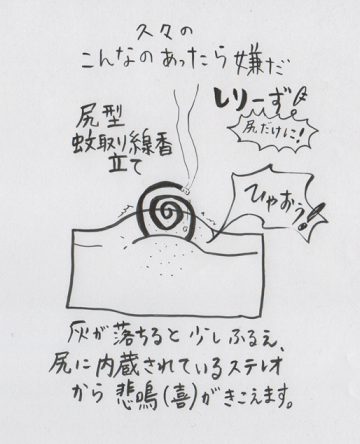 久々の
こんなのあったら嫌だ
しりーず
尻だけに!
尻型
蚊取り線香
立て
ひゃおぅ!
灰が落ちると少しふるえ、
尻に内蔵されているステレオ
から悲鳴(喜)がきこえます。